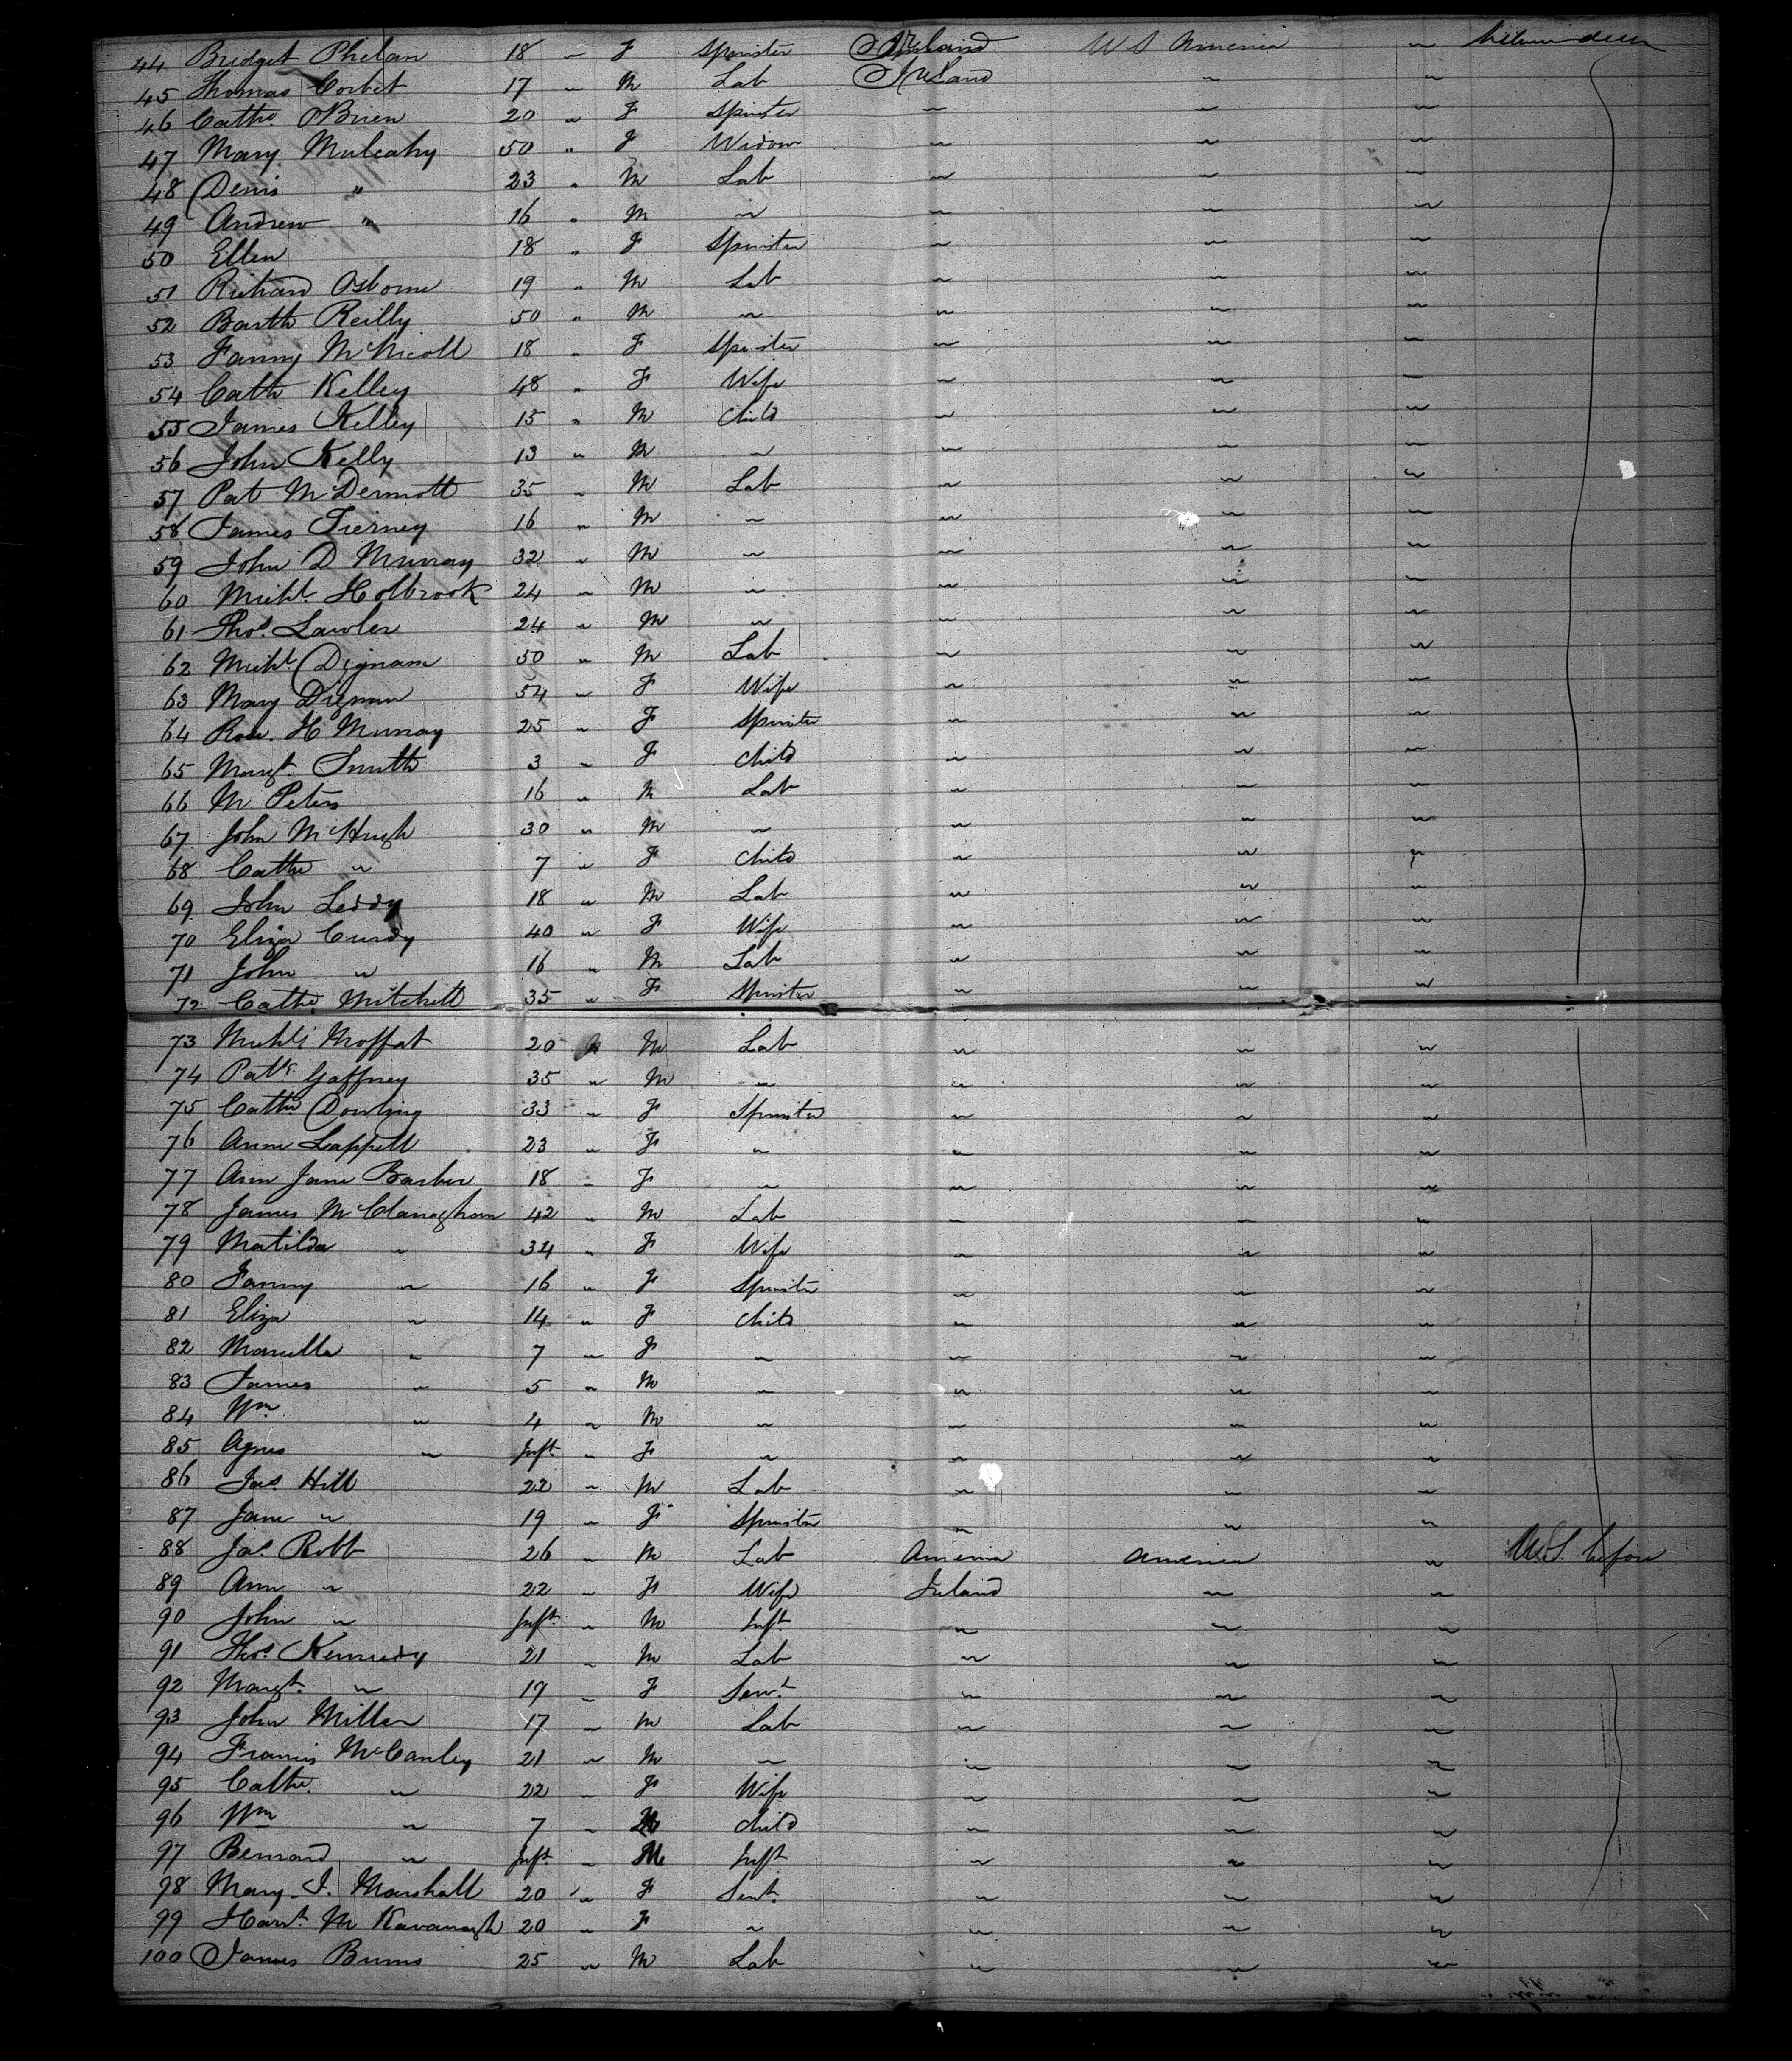 44 Bridget Phelan 18 " F Spinster Ireland U S America "
45 Thomas Corbet 17 " M Lab Ireland " "
46 Cathe. OBrien 20 " F Spinster " " "
47 Mary Mulcahy 50 " F Widow " " "
48 Denis " 23 " M Lab " " "
49 Andrew " 16 " M " " " "
50 Ellen 18 " F Spinster " " "
51 Richard Osborne 19 " M Lab " " "
52 Barth Reilly 50 " M " " " "
53 Fanny McNicoll 18 " F Spinster " " "
54 Cath Kelley 48 " F Wife " " "
55 James Kelley 15 " M Child " " "
56 John Kelly 13 " M " " " "
57 Pat McDermott 35 " M Lab " " "
58 James Tierney 16 " M " " " "
59 John D Murray 32 " M " " " "
60 Michl. Holbrook 24 " M " " " "
61 Thos. Lawler 24 " M " " " "
62 Michl. Dignam 50 " M Lab " " "
63 Mary Dignam 54 " F Wife " " "
64 Rose. H Murray 25 " F Spinster " " "
65 Margt. Smith 3 " F Child " " "
66 M Peters 16 " M Lab " " "
67 John McHugh 30 " M " " " "
68 Cathe " 7 " F Child " " "
69 John Leddy 18 " M Lab " " "
70 Eliza Curdy 40 " F Wife " " "
71 John " 16 " M Lab " " "
72 Cathe. Mitchell 35 " F Spinster " " "
73 Michl. Moffat 20 " M Lab " " "
74 Patk. Gaffney 35 " M " " " "
75 Cathe Dowling 33 " F Spinster " " "
76 Anne Lappell 23 " F " " " "
77 Ann Jane Barber 18 " F " " " "
78 James McClanaghan 42 " M Lab " " "
79 Matilda " 34 " F Wife " " "
80 Fanny " 16 " F Spinster " " "
81 Eliza " 14 " F Child " " "
82 Marcella " 7 " F " " " "
83 James " 5 " M " " " "
84 Wm " 4 " M " " " "
85 Agnes " Inft. " F " " " "
86 Jas. Hill 22 " M Lab " " "
87 Jane " 19 " F Spinster " " "
88 Jas. Robb 26 " M Lab America America " U.S. before
89 Ann " 22 " F Wife Ireland " "
90 John " Inft. " M Inft " " "
91 Thos. Kennedy 21 " M Lab " " "
92 Margt. " 19 " F Servt. " " "
93 John Miller 17 " M Lab " " "
94 Francis McCanley 21 " M " " " "
95 Cathe. " 22 " F Wife " " "
96 Wm " 7 " M Child " " "
97 Bernard " Inft. " M Inft " " "
98 Mary J. Marshall 20 " F Servt. " " "
99 M Kavanagh 20 " F " " " "
100 James Burns 25 " M Lab " " "